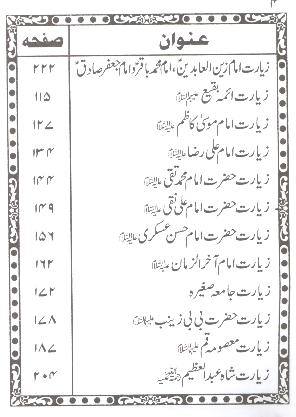 ۳
عنوان صفحہ
زیارت امام زین العابدینؑ، امام محمد باقرؑ و امام جعفر صادقؑ ۲۲۲
زیارت ائمہ بقیع علیہم السلام ۱۱۵
زیارت امام موسیٰ کاظم علیہ السلام ۱۲۷
زیارت امام علی رضا علیہ السلام ۱۳۴
زیارت حضرت امام محمد تقی علیہ السلام ۱۴۴
زیارت حضرت امام علی نقی علیہ السلام ۱۴۹
زیارت حضرت امام حسن عسکری علیہ السلام ۱۵۶
زیارت امام آخر الزمان علیہ السلام ۱۶۲
زیارت جامعہ صغیرہ ۱۷۲
زیارت حضرت بی بی زینب علیہا السلام ۱۷۸
زیارت معصومہ قم علیہا السلام ۱۸۷
زیارت شاہ عبدالعظیم ۲۰۴